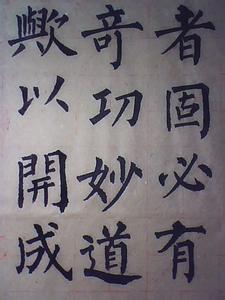 者固必有
竒功妙道
歟以開成